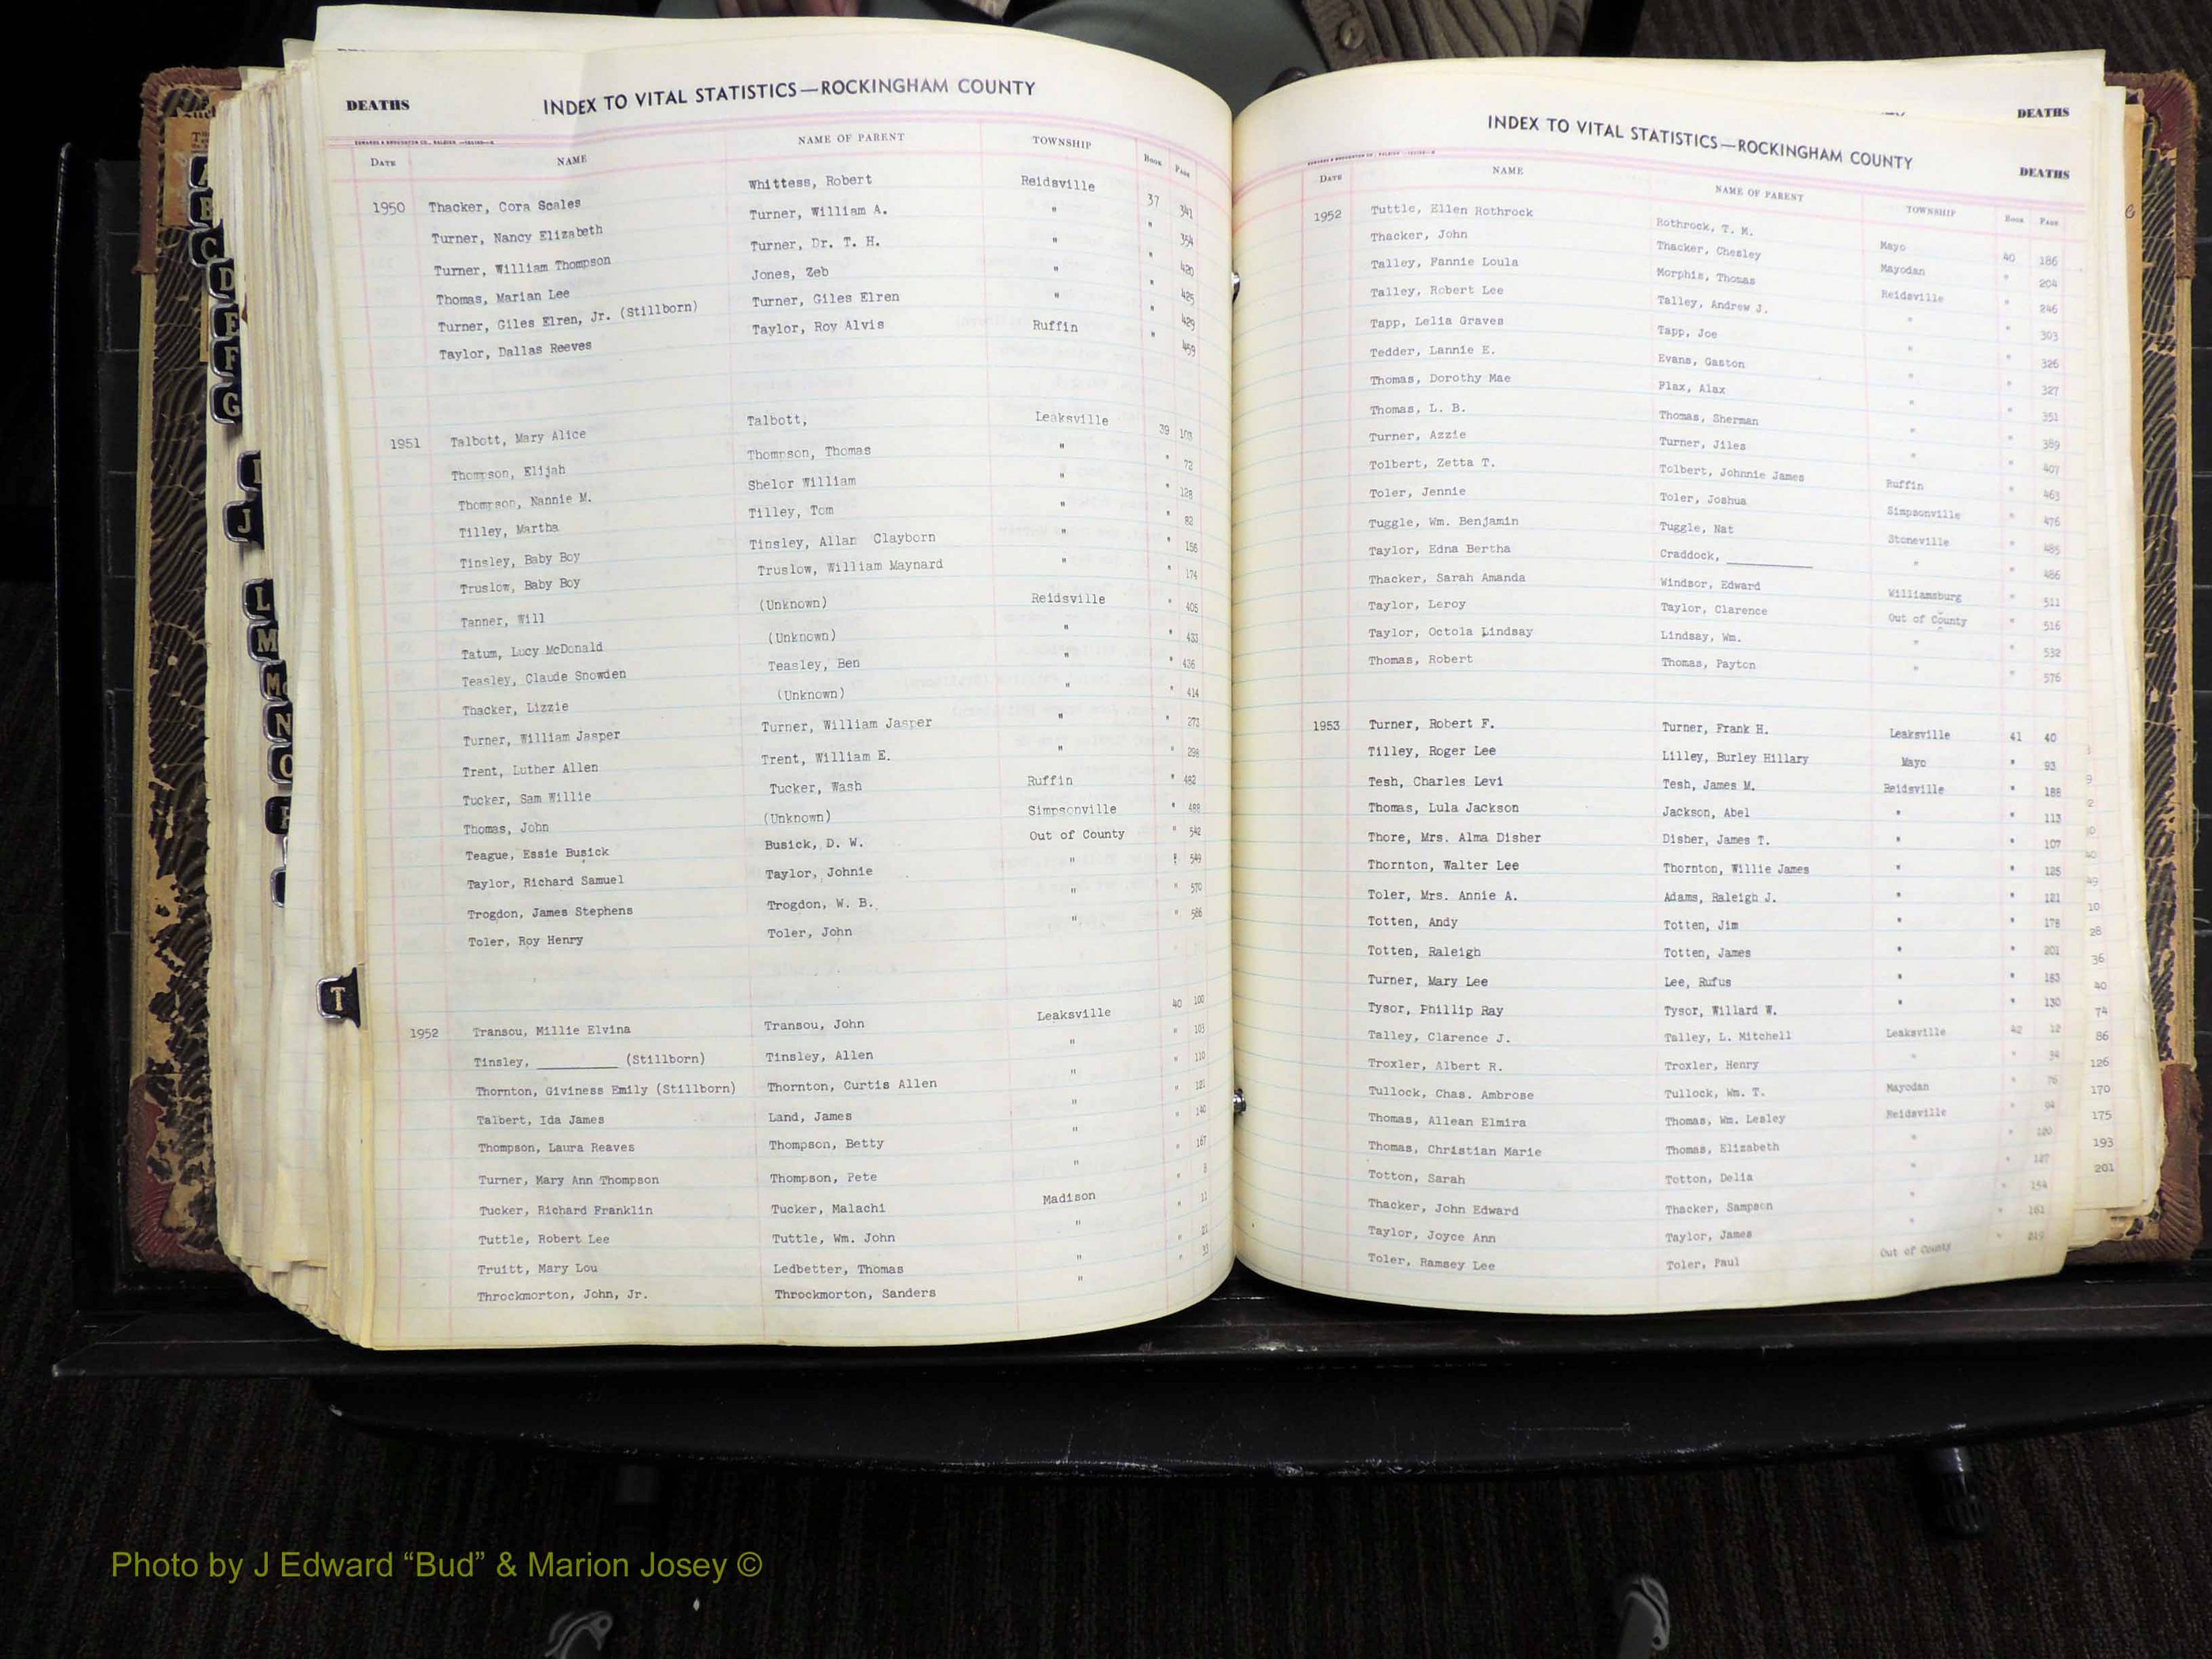 DEATHS
INDEX TO VITAL STATISTICS—ROCKINGHAM COUNTY
DATE NAME NAME OF PARENT TOWNSHIP BOOK PAGE
1950 Thacker, Cora Scales Whittess, Robert Reidsville 37 341
Turner, Nancy Elizabeth Turner, William A. " " 354
Turner, William Thompson Turner, Dr. T. H. " " 420
Thomas, Marian Lee Jones, Zeb " " 425
Turner, Giles Elren, Jr. (Stillborn) Turner, Giles Elren " " 429
Taylor, Dallas Reeves Taylor, Roy Alvis Ruffin " 459
1951 Talbott, Mary Alice Talbott, Leaksville 39 103
Thompson, Elijah Thompson, Thomas " " 72
Thompson, Nannie M. Shelor William " " 128
Tilley, Martha Tilley, Tom " " 82
Tinsley, Baby Boy Tinsley, Allan Clayborn " " 156
Truslow, Baby Boy Truslow, William Maynard " " 174
Tanner, Will (Unknown) Reidsville " 405
Tatum, Lucy McDonald (Unknown) " " 433
Teasley, Claude Snowden Teasley, Ben " " 436
Thacker, Lizzie (Unknown) " " 414
Turner, William Jasper Turner, William Jasper " " 273
Trent, Luther Allen Trent, William E. " " 298
Tucker, Sam Willie Tucker, Wash Ruffin " 482
Thomas, John (Unknown) Simpsonville " 488
Teague, Essie Busick Busick, D. W. Out of County " 542
Taylor, Richard Samuel Taylor, Johnie " " 549
Trogdon, James Stephens Trogdon, W. B. " " 570
Toler, Roy Henry Toler, John " " 586
1952 Transou, Millie Elvina Transou, John Leaksville 40 100
Tinsley, __________ (Stillborn) Tinsley, Allen " " 103
Thornton, Giviness Emily (Stillborn) Thornton, Curtis Allen " " 110
Talbert, Ida James Land, James " " 121
Thompson, Laura Reaves Thompson, Betty " " 140
Turner, Mary Ann Thompson Thompson, Pete " " 167
Tucker, Richard Franklin Tucker, Malachi Madison " 8
Tuttle, Robert Lee Tuttle, Wm. John " " 11
Truitt, Mary Lou Ledbetter, Thomas " " 21
Throckmorton, John, Jr. Throckmorton, Sanders " "
DEATHS
INDEX TO VITAL STATISTICS—ROCKINGHAM COUNTY
DEATHS
DATE NAME NAME OF PARENT TOWNSHIP BOOK PAGE
1952 Tuttle, Ellen Rothrock Rothrock, T. M. Mayo 40 186
Thacker, John Thacker, Chesley Mayodan " 204
Talley, Fannie Loula Morphis, Thomas Reidsville " 246
Talley, Robert Lee Talley, Andrew J. " " 303
Tapp, Lelia Graves Tapp, Joe " " 326
Tedder, Lannie E. Evans, Gaston " " 327
Thomas, Dorothy Mae Flax, Alax " " 351
Thomas, L. B. Thomas, Sherman " " 389
Turner, Azzie Turner, Jiles " " 407
Tolbert, Zetta T. Tolbert, Johnnie James Ruffin " 463
Toler, Jennie Toler, Joshua Simpsonville " 476
Tuggle, Wm. Benjamin Tuggle, Nat Stoneville " 485
Taylor, Edna Bertha Craddock, __________ " " 486
Thacker, Sarah Amanda Windsor, Edward Williamsburg " 511
Taylor, Leroy Taylor, Clarence Out of County " 516
Taylor, Octola Lindsay Lindsay, Wm. " " 532
Thomas, Robert Thomas, Payton " " 576
1953 Turner, Robert F. Turner, Frank H. Leaksville 41 40
Tilley, Roger Lee Lilley, Burley Hillary Mayo " 93
Tesh, Charles Levi Tesh, James M. Reidsville " 188
Thomas, Lula Jackson Jackson, Abel " " 113
Thore, Mrs. Alma Disher Disher, James T. " " 107
Thornton, Walter Lee Thornton, Willie James " " 125
Toler, Mrs. Annie A. Adams, Raleigh J. " " 121
Totten, Andy Totten, Jim " " 178
Totten, Raleigh Totten, James " " 201
Turner, Mary Lee Lee, Rufus " " 183
Tysor, Phillip Ray Tysor, Willard W. " " 130
Talley, Clarence J. Talley, L. Mitchell Leaksville 42 12
Troxler, Albert R. Troxler, Henry " " 34
Tullock, Chas. Ambrose Tullock, Wm. T. Mayodan " 76
Thomas, Allean Elmira Thomas, Wm. Lesley Reidsville " 94
Thomas, Christian Marie Thomas, Elizabeth " "
Totton, Sarah Totton, Delia " "
Thacker, John Edward Thacker, Sampson " " 154
Taylor, Joyce Ann Taylor, James " " 161
Toler, Ramsey Lee Toler, Paul Out of County " 219
10
28
36
40
74
86
126
170
175
193
201
A
B
C
D
E
F
G
J
L
M
Mc
N
O
T
Photo by J Edward “Bud” & Marion Josey ©